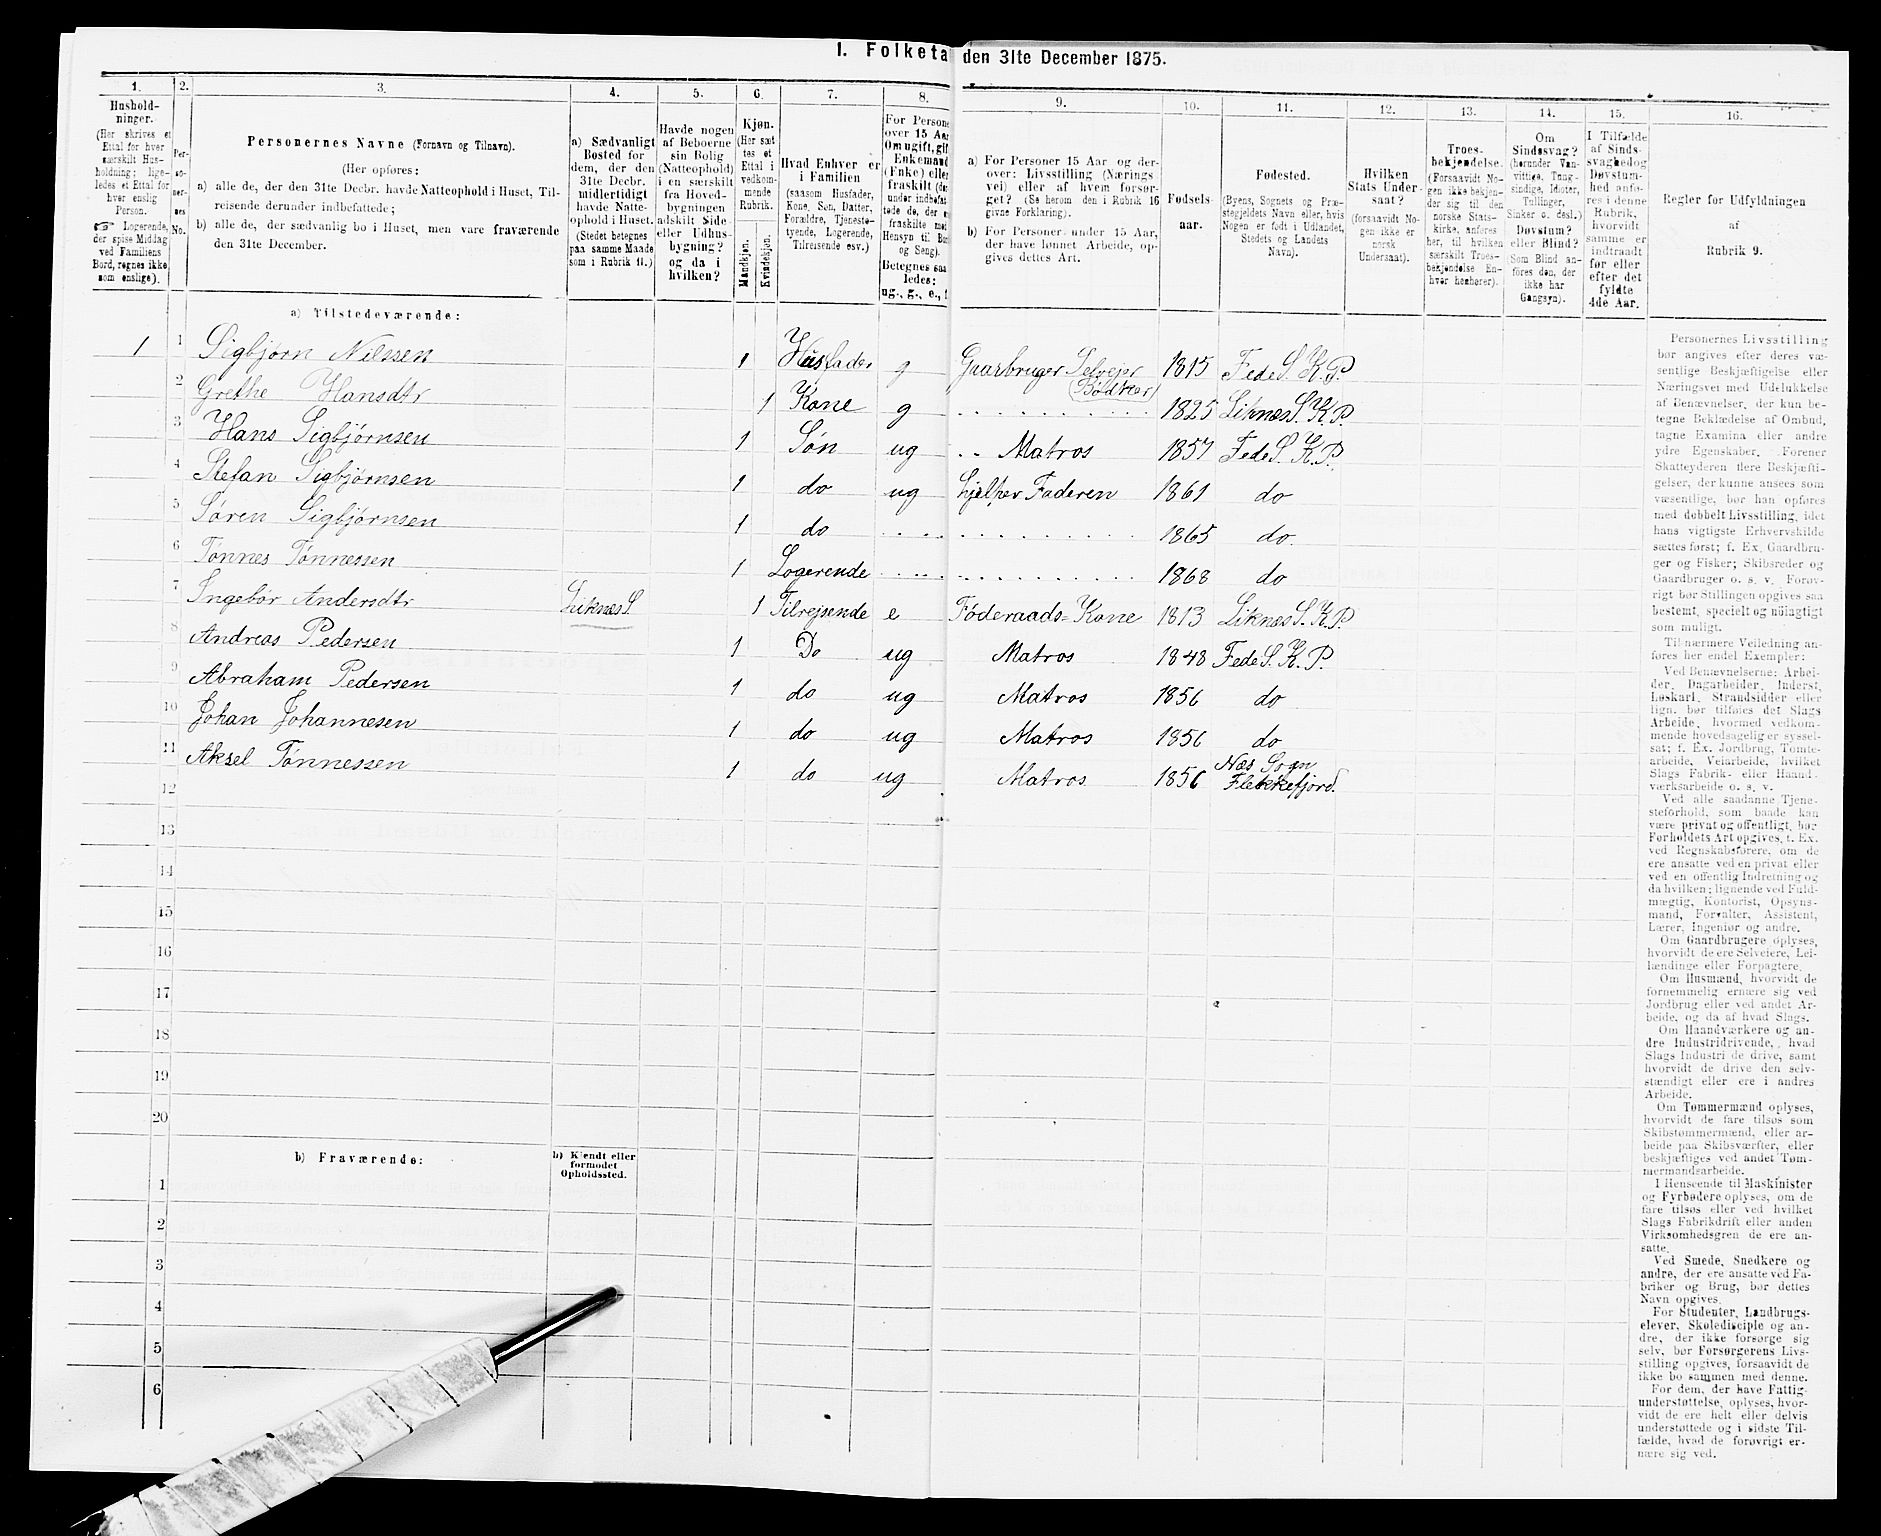 I. Folketa den 31te December 1875.
1. 2. 3. 4. 5. 6. 7. 8. 9. 10. 11. 12. 13. 14. 15. 16.
Hushold-
ninger.
(Her skrives et
Ettal for hver
særskilt Hus-
holdning; lige-
ledes et Ettal for
hver enslig
Person.
☞ Logerende,
der spise Middag
ved Familiens
Bord, regnes ikke
som enslige).
Per-
so-
ner-
nes
No.
Personernes Navne (Fornavn og Tilnavn).
(Her opføres:
a) alle de, der den 31te Decbr. havde Natteophold i Huset, Til-
reisende derunder indbefattede;
b) alle de, der sædvanlig bo i Huset, men vare fraværende
den 31te December.
a) Sædvanligt
Bosted for
dem, der den
31te Decbr.
midlertidigt
havde Natte-
ophold i Huset.
(Stedet betegnes
paa samme Maade
som i Rubrik 11.)
Havde nogen
af Beboerne
sin Bolig
(Natteophold)
i en særskilt
fra Hoved-
bygningen
adskilt Side-
eller Udhus-
bygning?
og da i
hvilken?
Kjøn.
(Her sæt
tes et
Ettal i
vedkom-
mende
Rubrik.
Mandkjøn.
Kvindekjøn.
Hvad Enhver er
i Familien
(saasom Husfader,
Kone, Søn, Datter,
Forældre, Tjeneste-
tyende, Logerende,
Tilreisende osv.)
For Persone
over 15 Aar
Om ugift, gif
Enkemand
(Enke) elle
fraskilt (de
under indbefat
tede de, der e
fraskilte med
Hensyn til Bo
og Seng).
Betegnes saa
ledes:
ug., g., e., f
a) For Personer 15 Aar og der-
over: Livsstilling (Nærings
vei) eller af hvem forsør-
get? (Se herom den i Rubrik 16
givne Forklaring).
b) For Personer under 15 Aar,
der have lønnet Arbeide, op-
gives dettes Art.
Fødsels-
aar.
Fødested.
(Byens, Sognets og Præ-
stegjeldets Navn eller, hvis
Nogen er født i Udlandet,
Stedets og Landets
Navn).
Hvilken
Stats Under-
saat?
(forsaavidt No-
gen ikke er
norsk
Undersaat).
Troes-
bekjendelse.
(Forsaavidt No-
gen ikke bekjen-
der sig til den
norske Stats-
kirke, anføres
her, til hvilken
særskilt Troes-
bekjendelse En-
hver henhører).
Om
Sindssvag?
(herunder Van-
vittige, Tung-
sindige, Idioter,
Tullinger,
Sinker o. desl.)
Døvstum?
eller Blind?
(Som Blind an-
føres den, der
ikke har
Gangsyn).
I Tilfælde
af Sinds-
svaghed og
Døvstum-
hed anfø-
res i denne
Rubrik,
hvorvidt
samme er
indtraadt
før eller
efter det
fyldte
4de Aar.
Regler for Udfyldningen
af
Rubrik 9.
a) Tilstedeværende:
1 1 Sigbjørn Nilssen 1 Husfader g Gaarbruger Selvejer (Bødker) 1815 Fede S. K. P.
2 Grethe Hansdtr 1 Kone g 1825 Liknæs S. K. P.
3 Hans Sigbjørnsen 1 Søn ug Matros 1857 Fede S. K. P.
4 Stefan Sigbjørnsen 1 do ug hjelper Faderen 1861 do
5 Søren Sigbjørnsen 1 do 1865 do
6 Tønnes Tønnessen 1 Logerende 1868 do
7 Ingebor Andersdtr Liknæs S 1 Tilrejsende e Føderaads=Kone 1813 Liknæs S. K. P.
8 Andreas Pedersen 1 Do ug Matros 1848 Fede S. K. P.
9 Abraham Pedersen 1 do ug Matros 1856 do
10 Johan Johannesen 1 do ug Matros 1856 do
11 Aksel Tønnessen 1 do ug Matros 1856 Næs Sogn Flekkefjord.
12
13
14
15
16
17
18
19
20
b) Fraværende:
b) Kjendt eller
formodet
Opholdssted.
1
2
3
4
5
6
Personernes Livsstilling
bør angives efter deres væ-
sentlige Beskjæftigelse eller
Næringsvei med Udelukkelse
af Benævnelser, der kun be-
tegne Beklædelse af Ombud,
tagne Examina eller andre
ydre Egenskaber. Forener
Skatteyderen flere Beskjæfti-
gelser, der kunne ansees som
væsentlige, bør han opføres
med dobbelt Livsstilling, idet
hans vigtigste Erhvervskilde
sættes først; f. Ex. Gaardbru-
ger og Fisker; Skibsreder og
Gaardbruger o. s. v. Forøv-
rigt bør Stillingen opgives saa
bestemt, specielt og nøiagtigt
som muligt.
Til nærmere Veiledning an-
føres her endel Exempler:
Ved Benævnelserne: Arbei-
der, Dagarbeider, Inderst,
Løskarl, Strandsidder eller
lign. bør tilføies det Slags
Arbeide, hvormed vedkom-
mende hovedsagelig er syssel-
sat; f. Ex. Jordbrug, Tomte-
arbeide, Veiarbeide, hvilket
Slags Fabrik- eller Haand-
værksarbeide o. s. v.
Ved alle saadanne Tjene-
steforhold, som baade kan
være privat og offentligt, bør
Forholdets Art opgives, f. Ex.
ved Regnskabsførere, om de
ere ansatte ved en privat eller
ved en offentlig Indretning og
da hvilken; lignende ved Fuld-
mægtig, Kontorist, Opsyns-
mand, Forvalter, Assistent,
Lærer, Ingeniør og andre.
Om Gaardbrugere oplyses,
hvorvidt de ere Selveiere, Lei-
lændinge eller Forpagtere.
Om Husmænd, hvorvidt de
fornemmelig ernære sig ved
Jordbrug eller ved andet Ar-
beide, og da af hvad Slags.
Om Haandværkere og an-
dre Industridrivende, hvad
Slags Industri de drive, samt
hvorvidt de drive den selv-
stændigt eller ere i andres
Arbeide.
Om Tømmermænd oplyses,
hvorvidt de fare tilsøs som
Skibstømmermænd, eller ar-
beide paa Skibsværfter, eller
beskjæftiges ved andet Tøm-
mermandsarbeide.
I Henseende til Maskinister
og Fyrbødere oplyses, om de
fare tilsøs eller ved hvilket
Slags Fabrikdrift eller anden
Virksomhedsgren de ere an-
satte.
Ved Smede, Snedkere og
andre, der ere ansatte ved Fa-
briker og Brug, bør dettes
Navn opgives.
For Studenter, Landbrugs-
elever, Skoledisciple og an-
dre, der ikke forsørge sig
selv, bør Forsørgerens Livs-
stilling opgives, forsaavidt de
ikke bo sammen med denne.
For dem, der have Fattig-
understøttelse, oplyses, hvor-
vidt de ere helt eller delvis
understøttede og i sidste Til-
fælde, hvad de forøvrigt er-
nære sig ved.